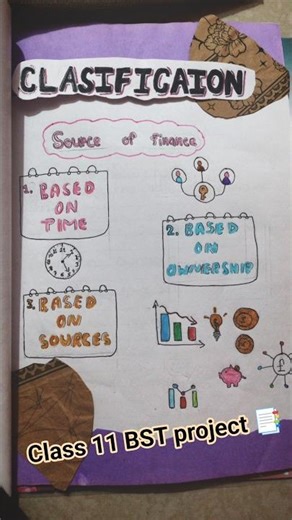 CLASIFICAION
Source of finance
1. BASED
ON
TIME
2. BASED
ON
OWNERSHIP
3. BASED
ON
SOURCES
£
Class 11 BST project